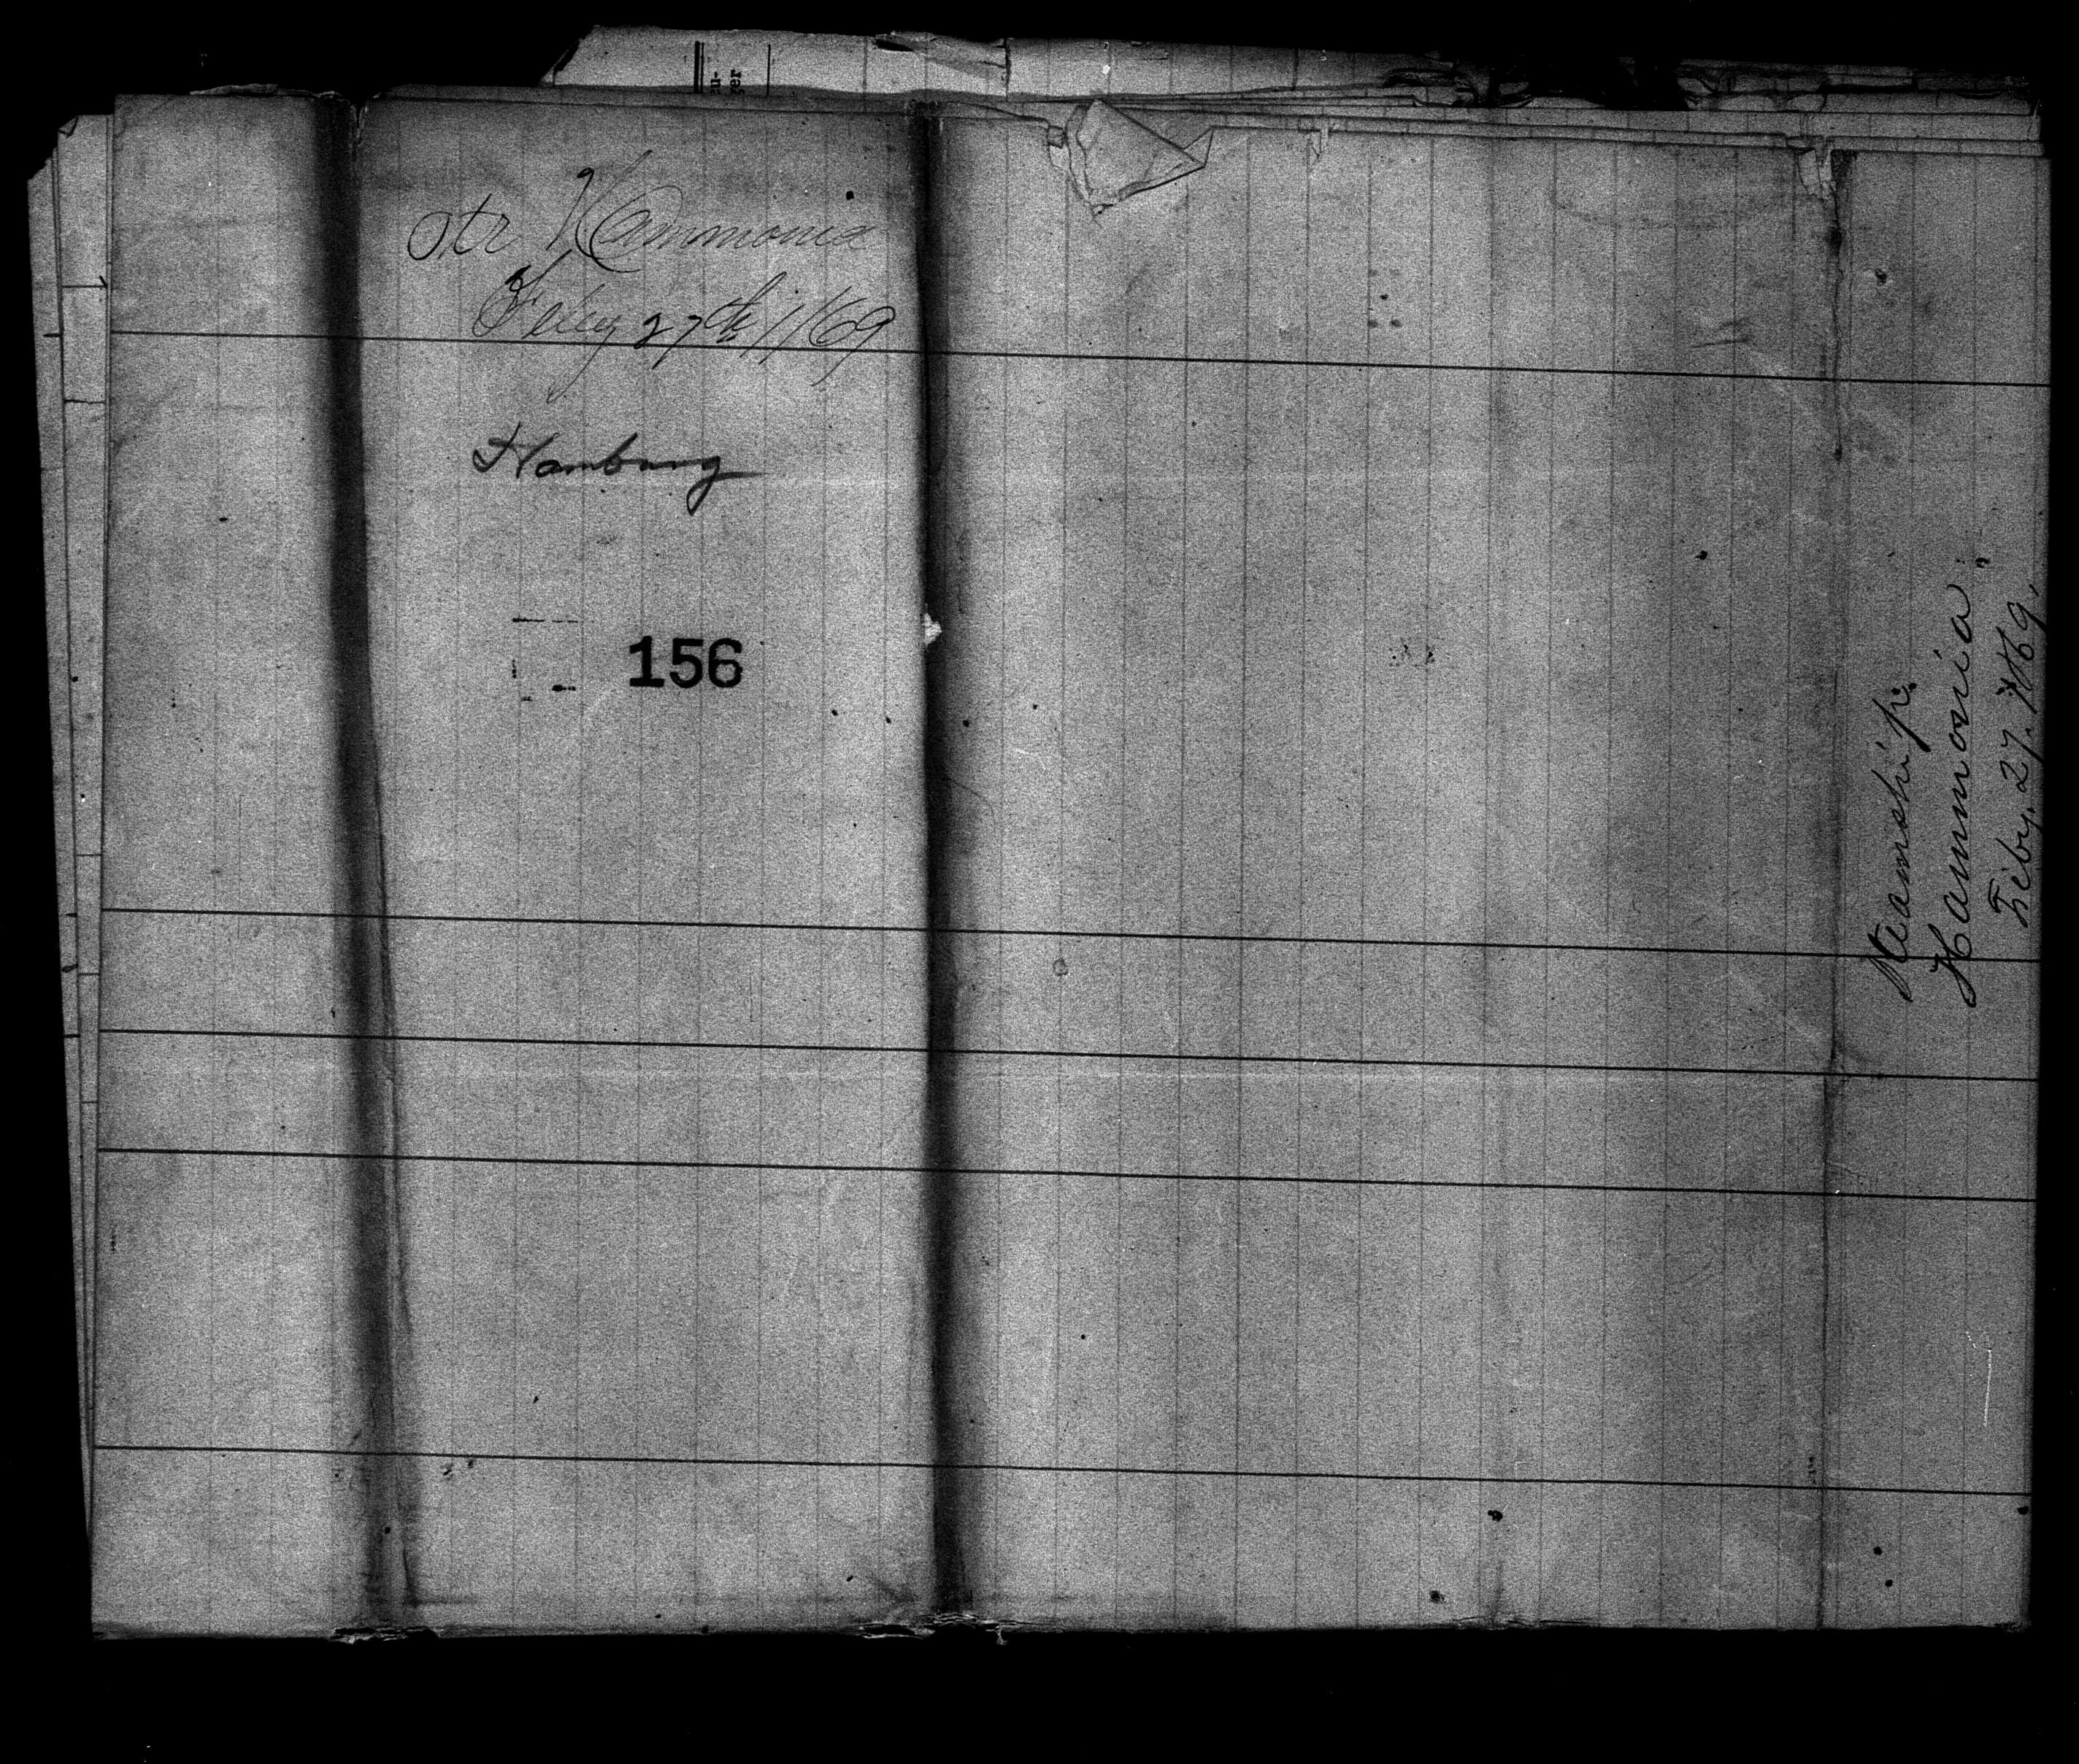 Str Hammonia
Feby 27th / 1869
Hamburg
156
Steamship:
Hammonia"
Feby. 27. 1869.